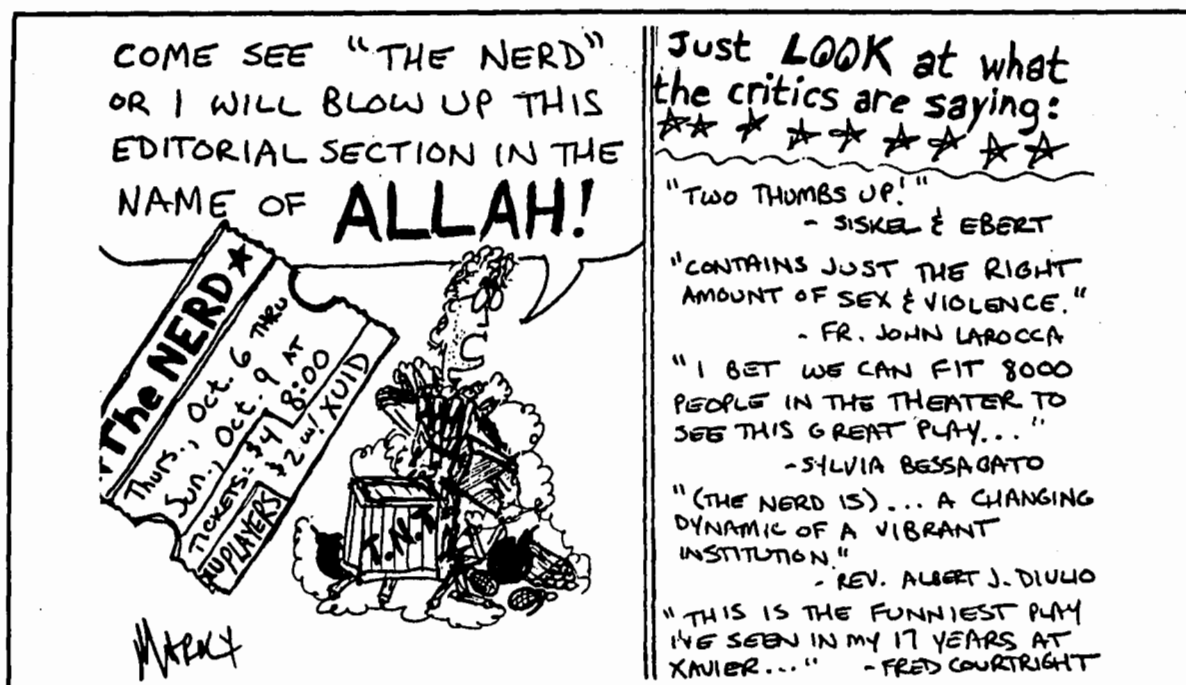 COME SEE "THE NERD"
OR I WILL BLOW UP THIS
EDITORIAL SECTION IN THE
NAME OF ALLAH!
The NERD
Thurs., Oct. 6 THRU
Sun., Oct. 9 AT
8:00
TICKETS: $4
$2 w/ XUID
XU PLAYERS
T.N.T.
MARKX
Just LOOK at what
the critics are saying:
"TWO THUMBS UP!"
- SISKEL & EBERT
"CONTAINS JUST THE RIGHT
AMOUNT OF SEX & VIOLENCE."
- FR. JOHN LAROCCA
"I BET WE CAN FIT 8000
PEOPLE IN THE THEATER TO
SEE THIS GREAT PLAY..."
-SYLVIA BESSAGATO
"(THE NERD IS)... A CHANGING
DYNAMIC OF A VIBRANT
INSTITUTION."
- REV. ALBERT J. DIULIO
"THIS IS THE FUNNIEST PLAY
I'VE SEEN IN MY 17 YEARS AT
XAVIER..." -FRED COURTRIGHT